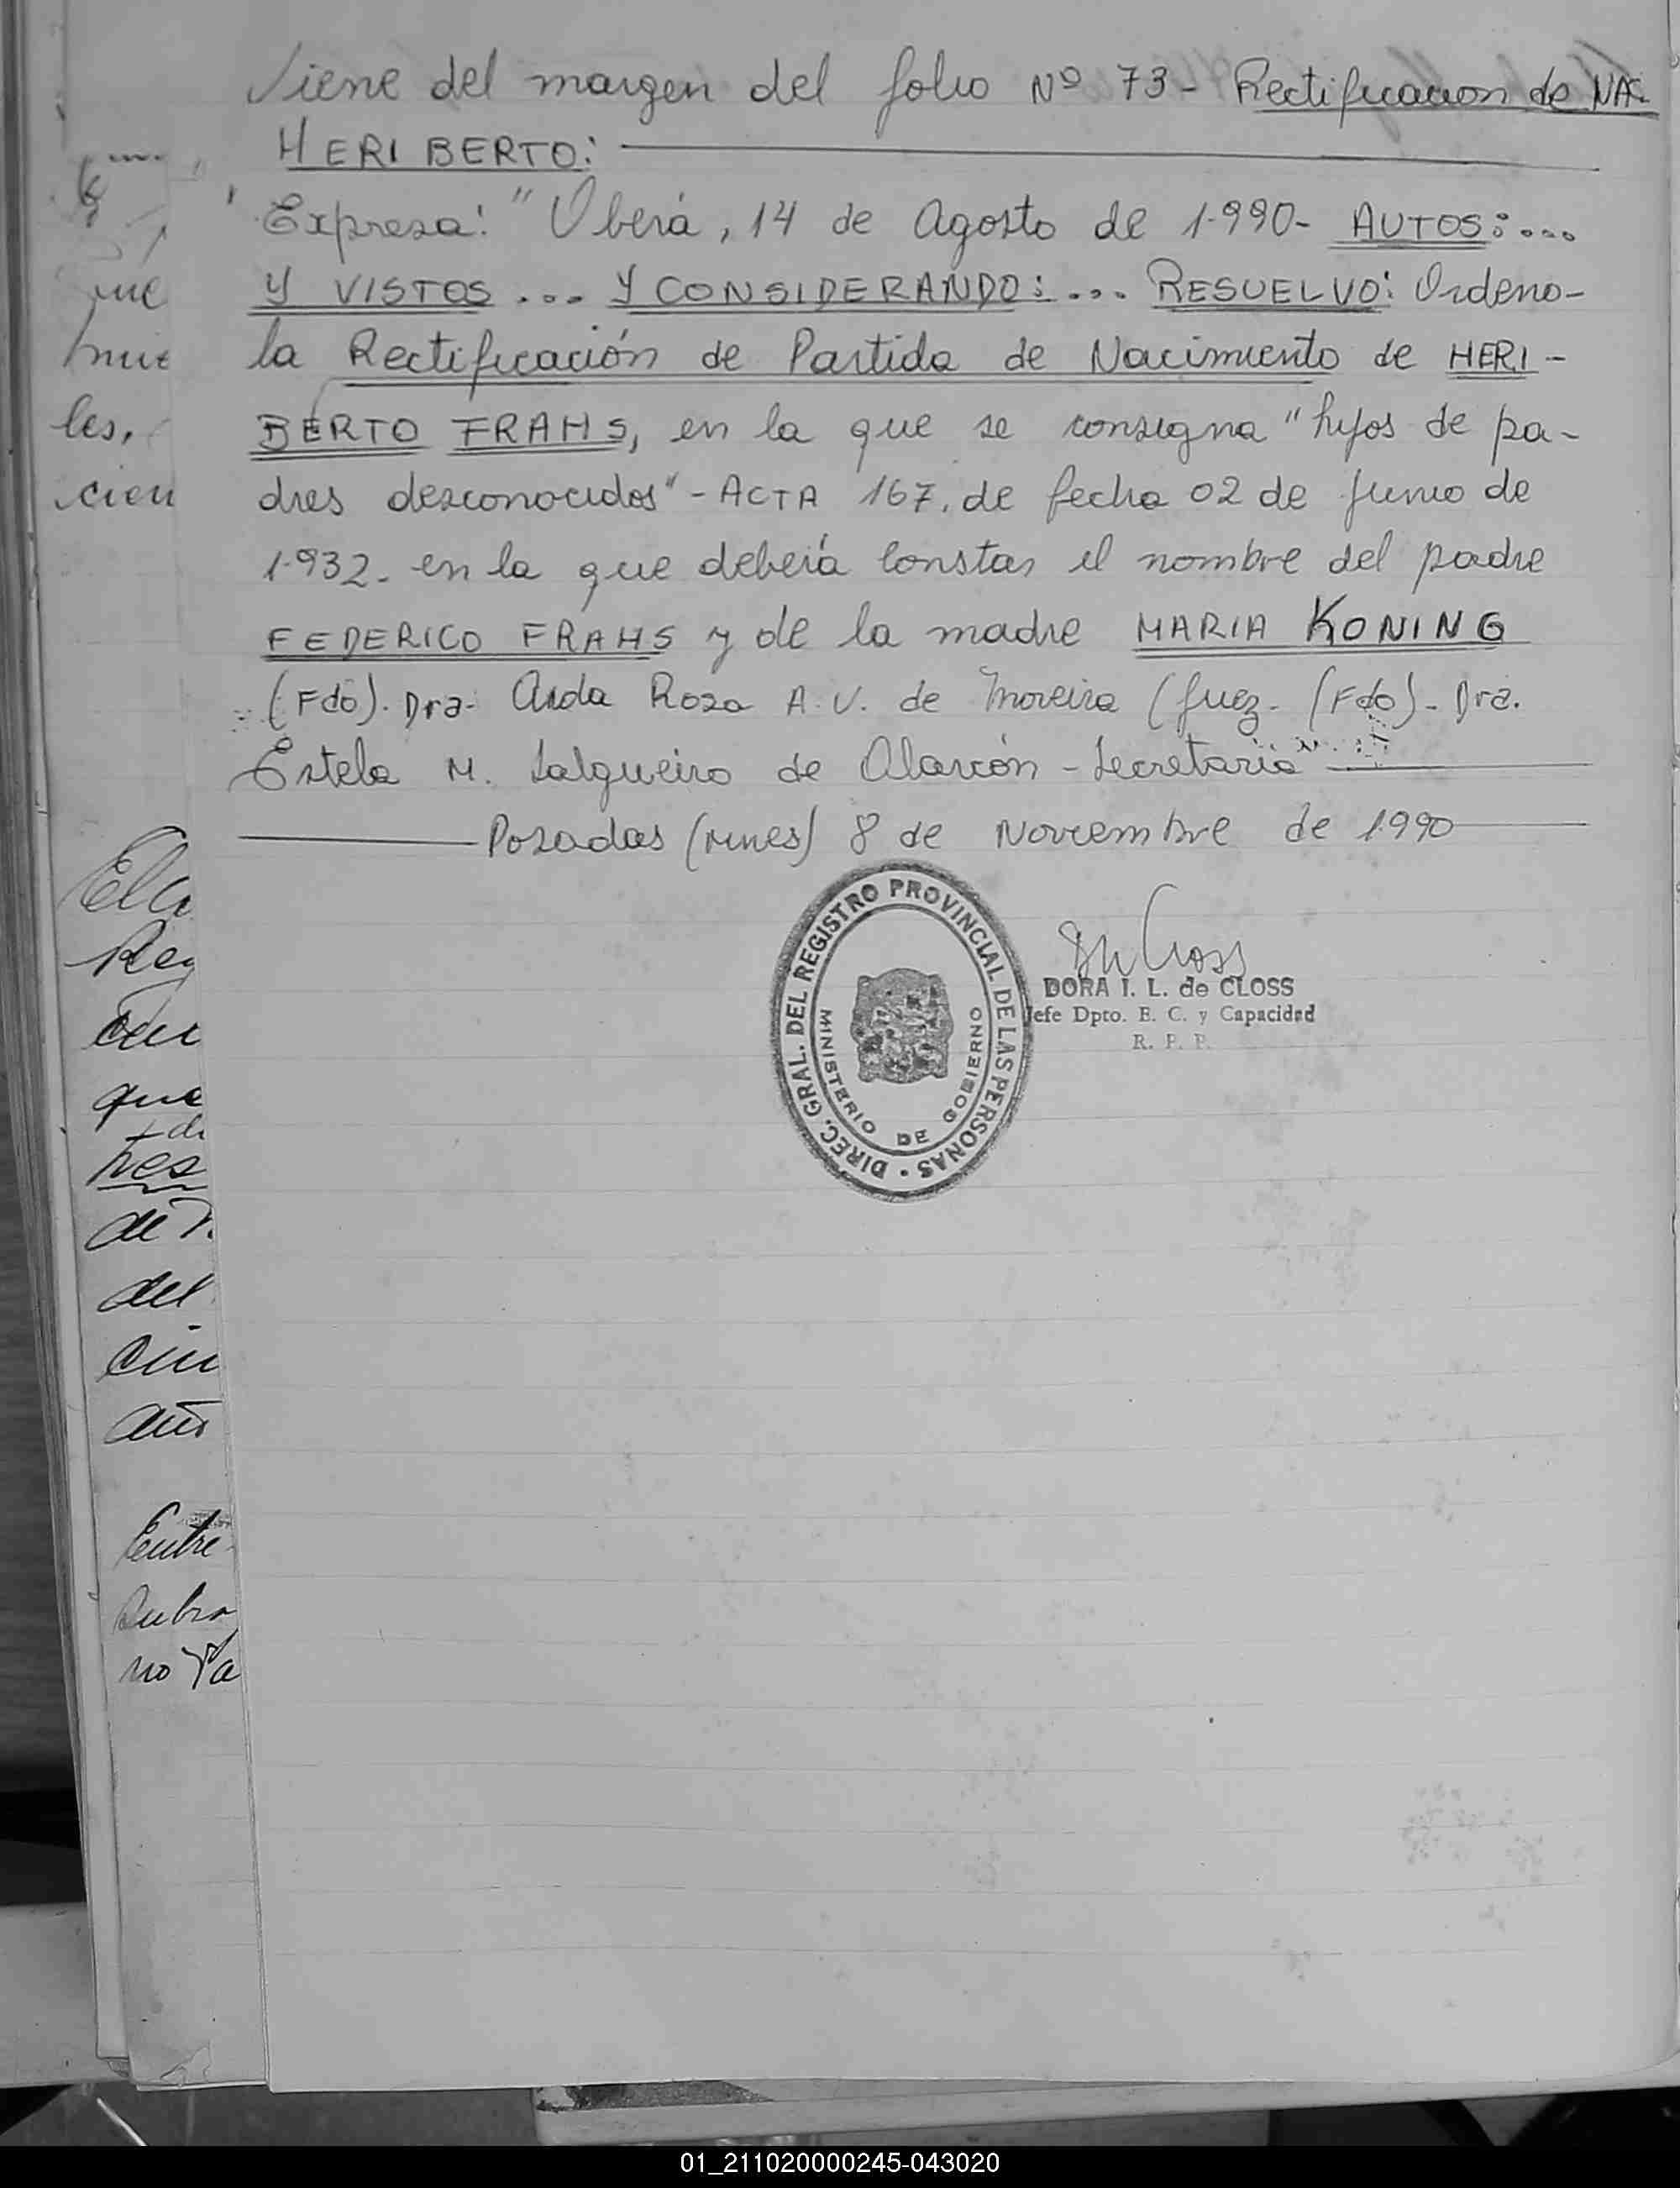 Viene del margen del folio Nº 73 - Rectificacion de NAC.
HERIBERTO:
Expresa: "Oberá, 14 de Agosto de 1.990- AUTOS:...
Y VISTOS ... Y CONSIDERANDO: ... RESUELVO: Ordeno-
la Rectificación de Partida de Nacimiento de HERI-
BERTO FRAHS, en la que se consigna "hijos de pa-
dres desconocidos" - ACTA 167, de fecha 02 de Junio de
1.932. en la que deberá constar el nombre del padre
FEDERICO FRAHS y de la madre MARIA KONING
(Fdo). Dra. Aida Rosa A. V. de Moreira (Juez. (Fdo) - Dra.
Estela M. Salgueiro de Alarcón - Secretaria"
Posadas (Mnes) 8 de Noviembre de 1990
DIREC. GRAL. DEL REGISTRO PROVINCIAL DE LAS PERSONAS
MINISTERIO DE GOBIERNO
DORA I. L. de CLOSS
Jefe Dpto. E. C. y Capacidad
R. P. P.
les,
cien
que
tres
de
del
Entre
no Pa
01_211020000245-043020